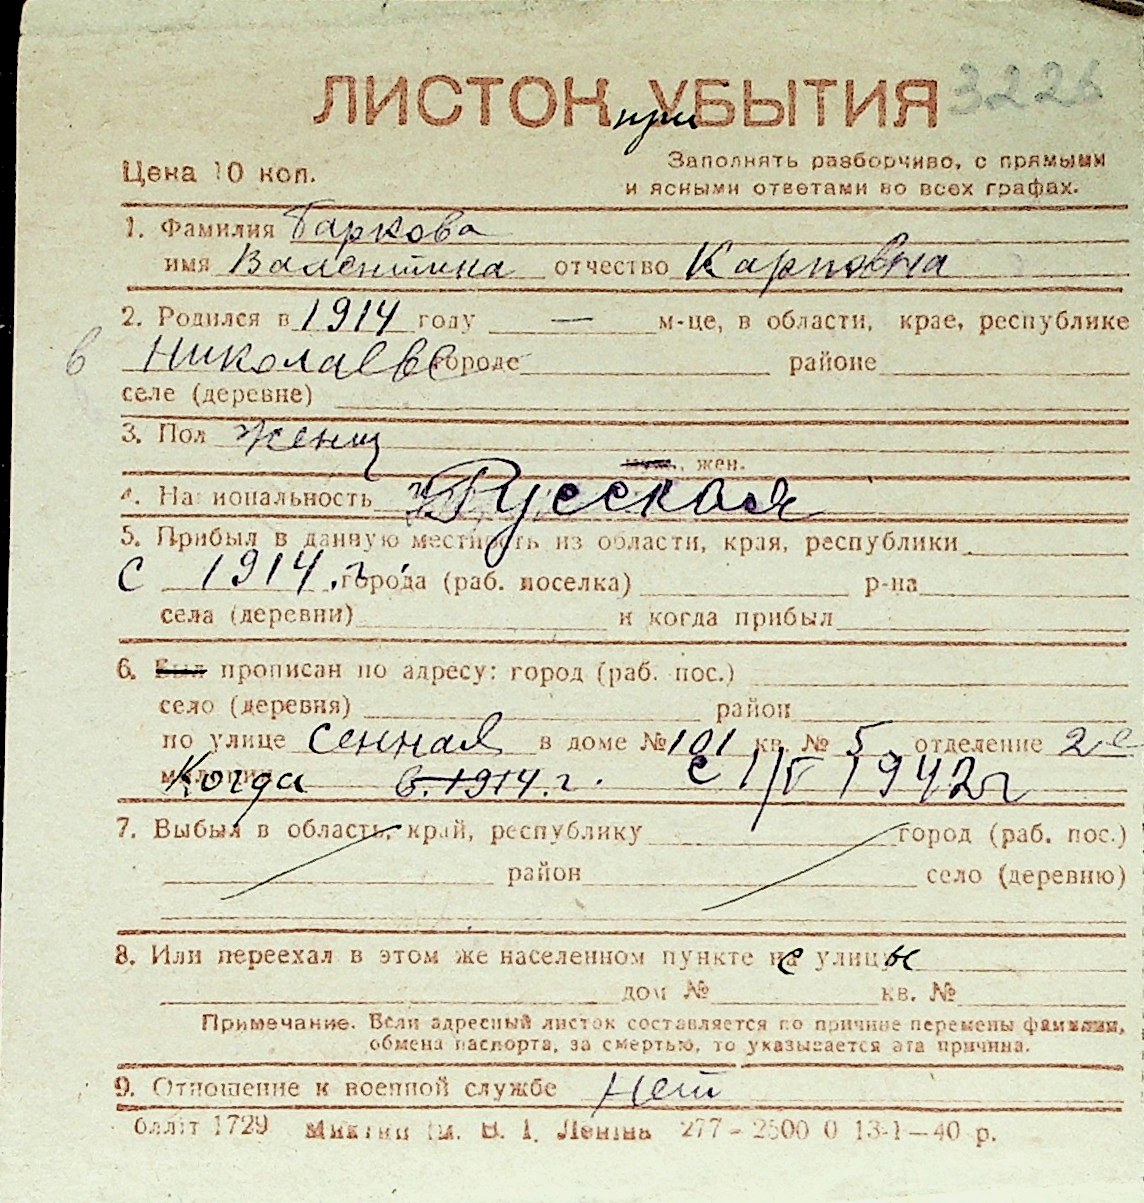 ЛИСТОК при УБЫТИЯ 3226
Цена 10 коп.
Заполнять разборчиво, с прямыми
и ясными ответами во всех графах.
1. Фамилия Таркова
имя Валентина отчество Карповна
2. Родился в 1914 году — м-це, в области, крае, республике
в Николаеве городе районе
селе (деревне)
3. Пол женщ
муж., жен.
4. Национальность Русская
5. Прибыл в данную местность из области, края, республики
с 1914 г. города (раб. поселка) р-на
села (деревни) и когда прибыл
6. Был прописан по адресу: город (раб. пос.)
село (деревня) район
по улице Сенная в доме № 101 кв. № 5 отделение 2е
милиции Когда в 1914 г. с 1/V 1942 г
7. Выбыл в область, край, республику город (раб. пос.)
район село (деревню)
8. Или переехал в этом же населенном пункте с улицы
дом № кв. №
Примечание. Если адресный листок составляется по причине перемены фамилии,
обмена паспорта, за смертью, то указывается эта причина.
9. Отношение к военной службе Нет
блліт 1729 ім. В. І. Леніна 277—2500 0 13-1—40 р.